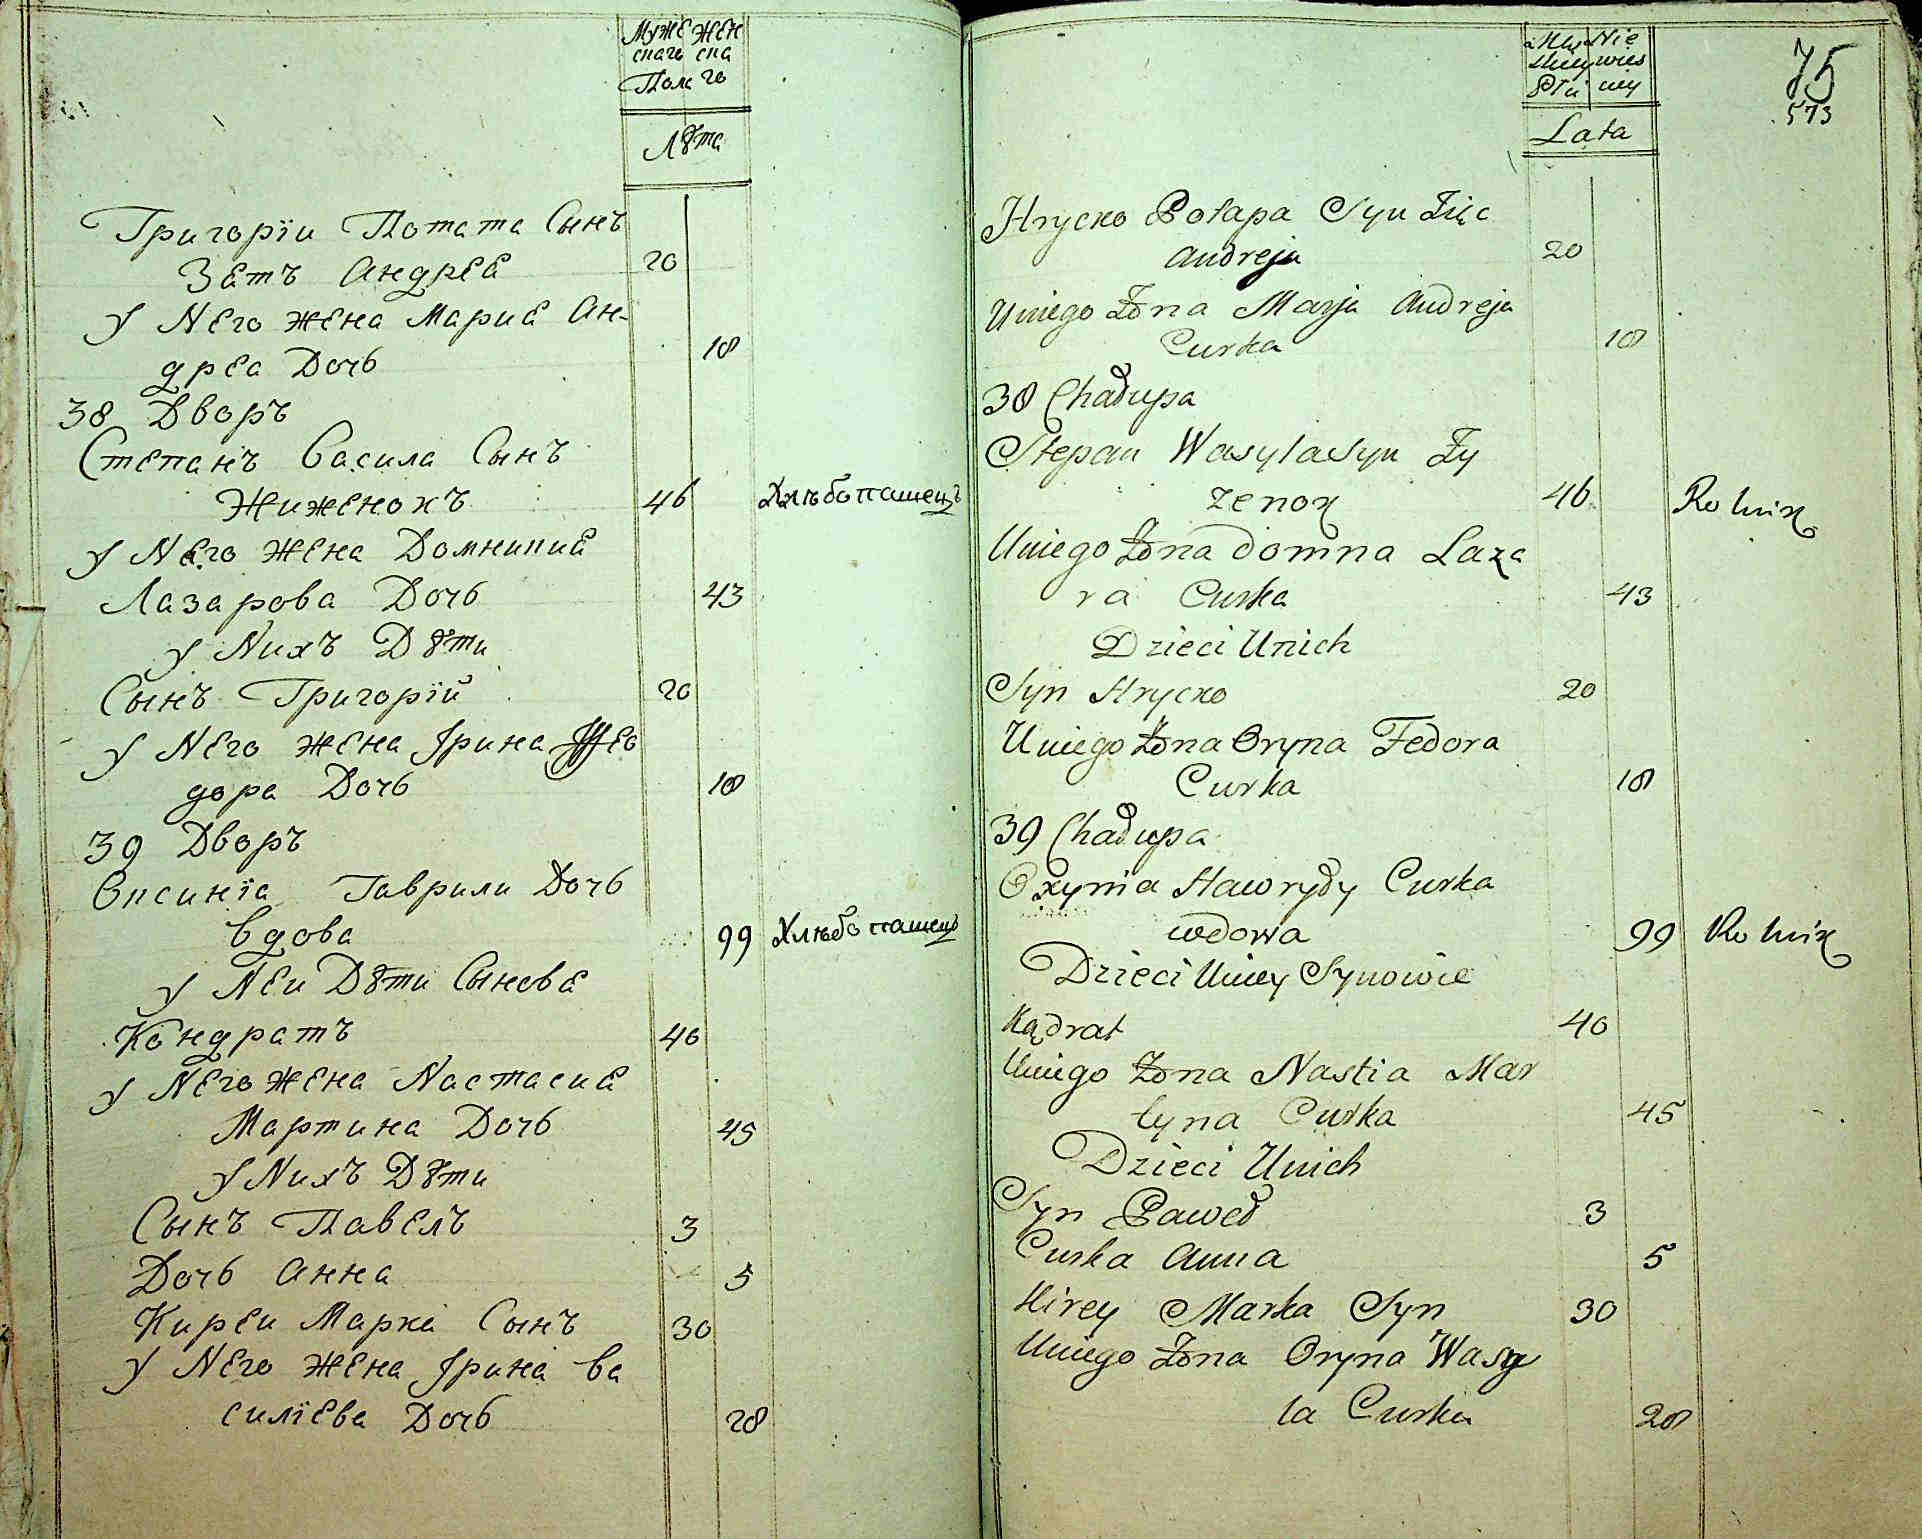 Муже Жен
скаго ска
Пола го
Лѣта
Григорїи Потапа Сынъ
Зеть Андрея 20
У Него жена Мария Ан-
дреа Дочь 18
38 Дворъ
Степанъ Васила Сынъ
Жиженокъ 46 Хлѣбопашецъ
У Него жена Домникия
Лазарова Дочь 43
У Нихъ Дѣти
Сынъ Григорїй 20
У Него жена Ірина Фео
дора Дочь 18
39 Дворъ
Оксинїа Гаврили Дочь
вдова 99 Хлѣбопашецъ
У Неи Дѣти Сынове
Кондратъ 40
У Него жена Настасия
Мартина Дочь 45
У Нихъ Дѣти
Сынъ Павелъ 3
Дочь Анна 5
Киреи Марка Сынъ 30
У Него жена Ірина Ва
силїева Дочь 28
75
573
Płci
Lata
Hrycko Potapa Syn Zięc
Andreja 20
Uniego Żona Marja Andreja
Curka 18
38 Chałupa
Stepan Wasyla Syn Ży
żenok 46 Rolnik
Uniego Żona Domna Laza
ra Curka 43
Dzieci Unich
Syn Hrycko 20
Uniego Żona Oryna Fedora
Curka 18
39 Chałupa
Oxynia Hawryły Curka
wdowa 99 Rolnik
Dzieci Uniey Synowie
Kądrat 40
Uniego Żona Nastia Mar
tyna Curka 45
Dzieci Unich
Syn Paweł 3
Curka Anna 5
Kirey Marka Syn 30
Uniego Żona Oryna Wasy
la Curka 28